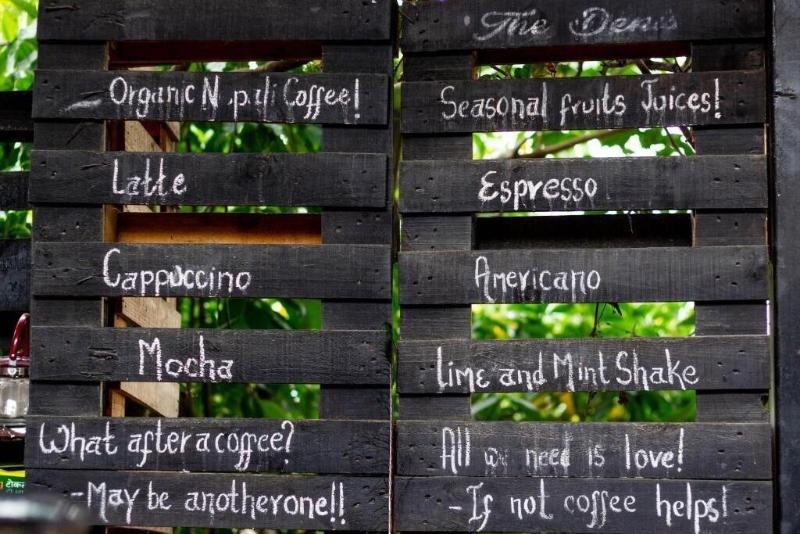 Organic Nepali Coffee!
Latte
Cappuccino
Mocha
What after a coffee?
-May be another one!!
The
Seasonal fruits Juices!
Espresso
Americano
Lime and Mint Shake
All we need is love!
-If not coffee helps!